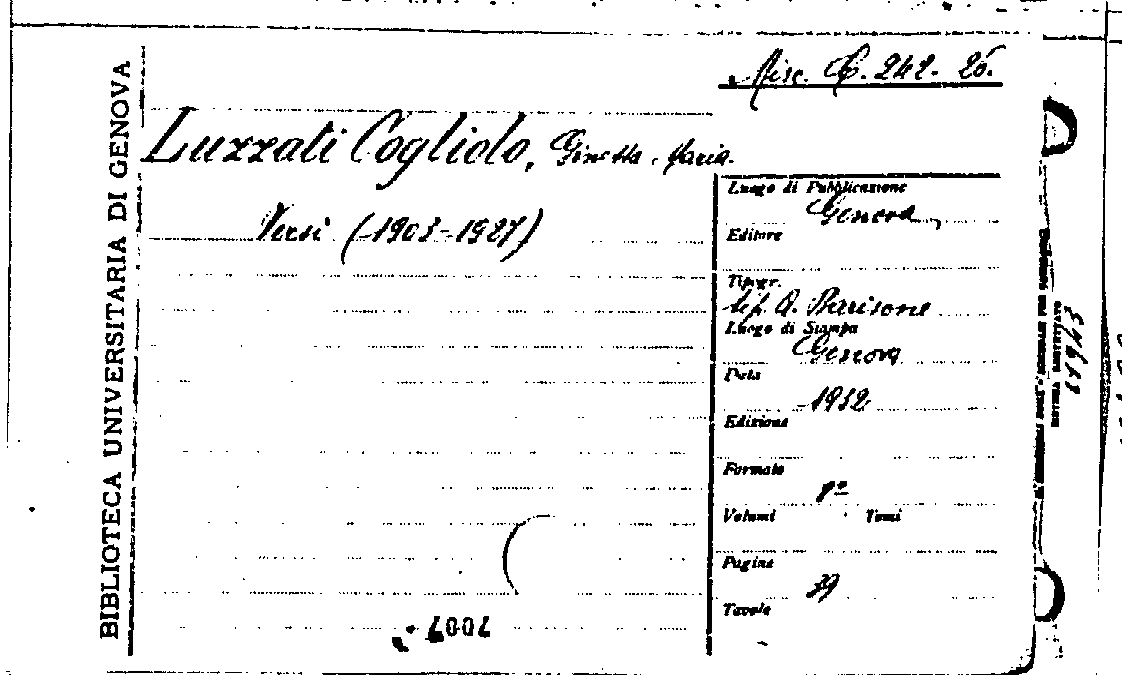 Misc. C. 242. 26.
BIBLIOTECA UNIVERSITARIA DI GENOVA
Luzzati Cogliolo, Ginetta Maria.
Versi (1903-1927)
Luogo di Pubblicazione
Genova
Editore
Tipogr.
tip. A. Barisone
Luogo di Stampa
Genova
Data
1932
Edizione
Formato
8º
Volumi Tomi
Pagine
39
Tavole